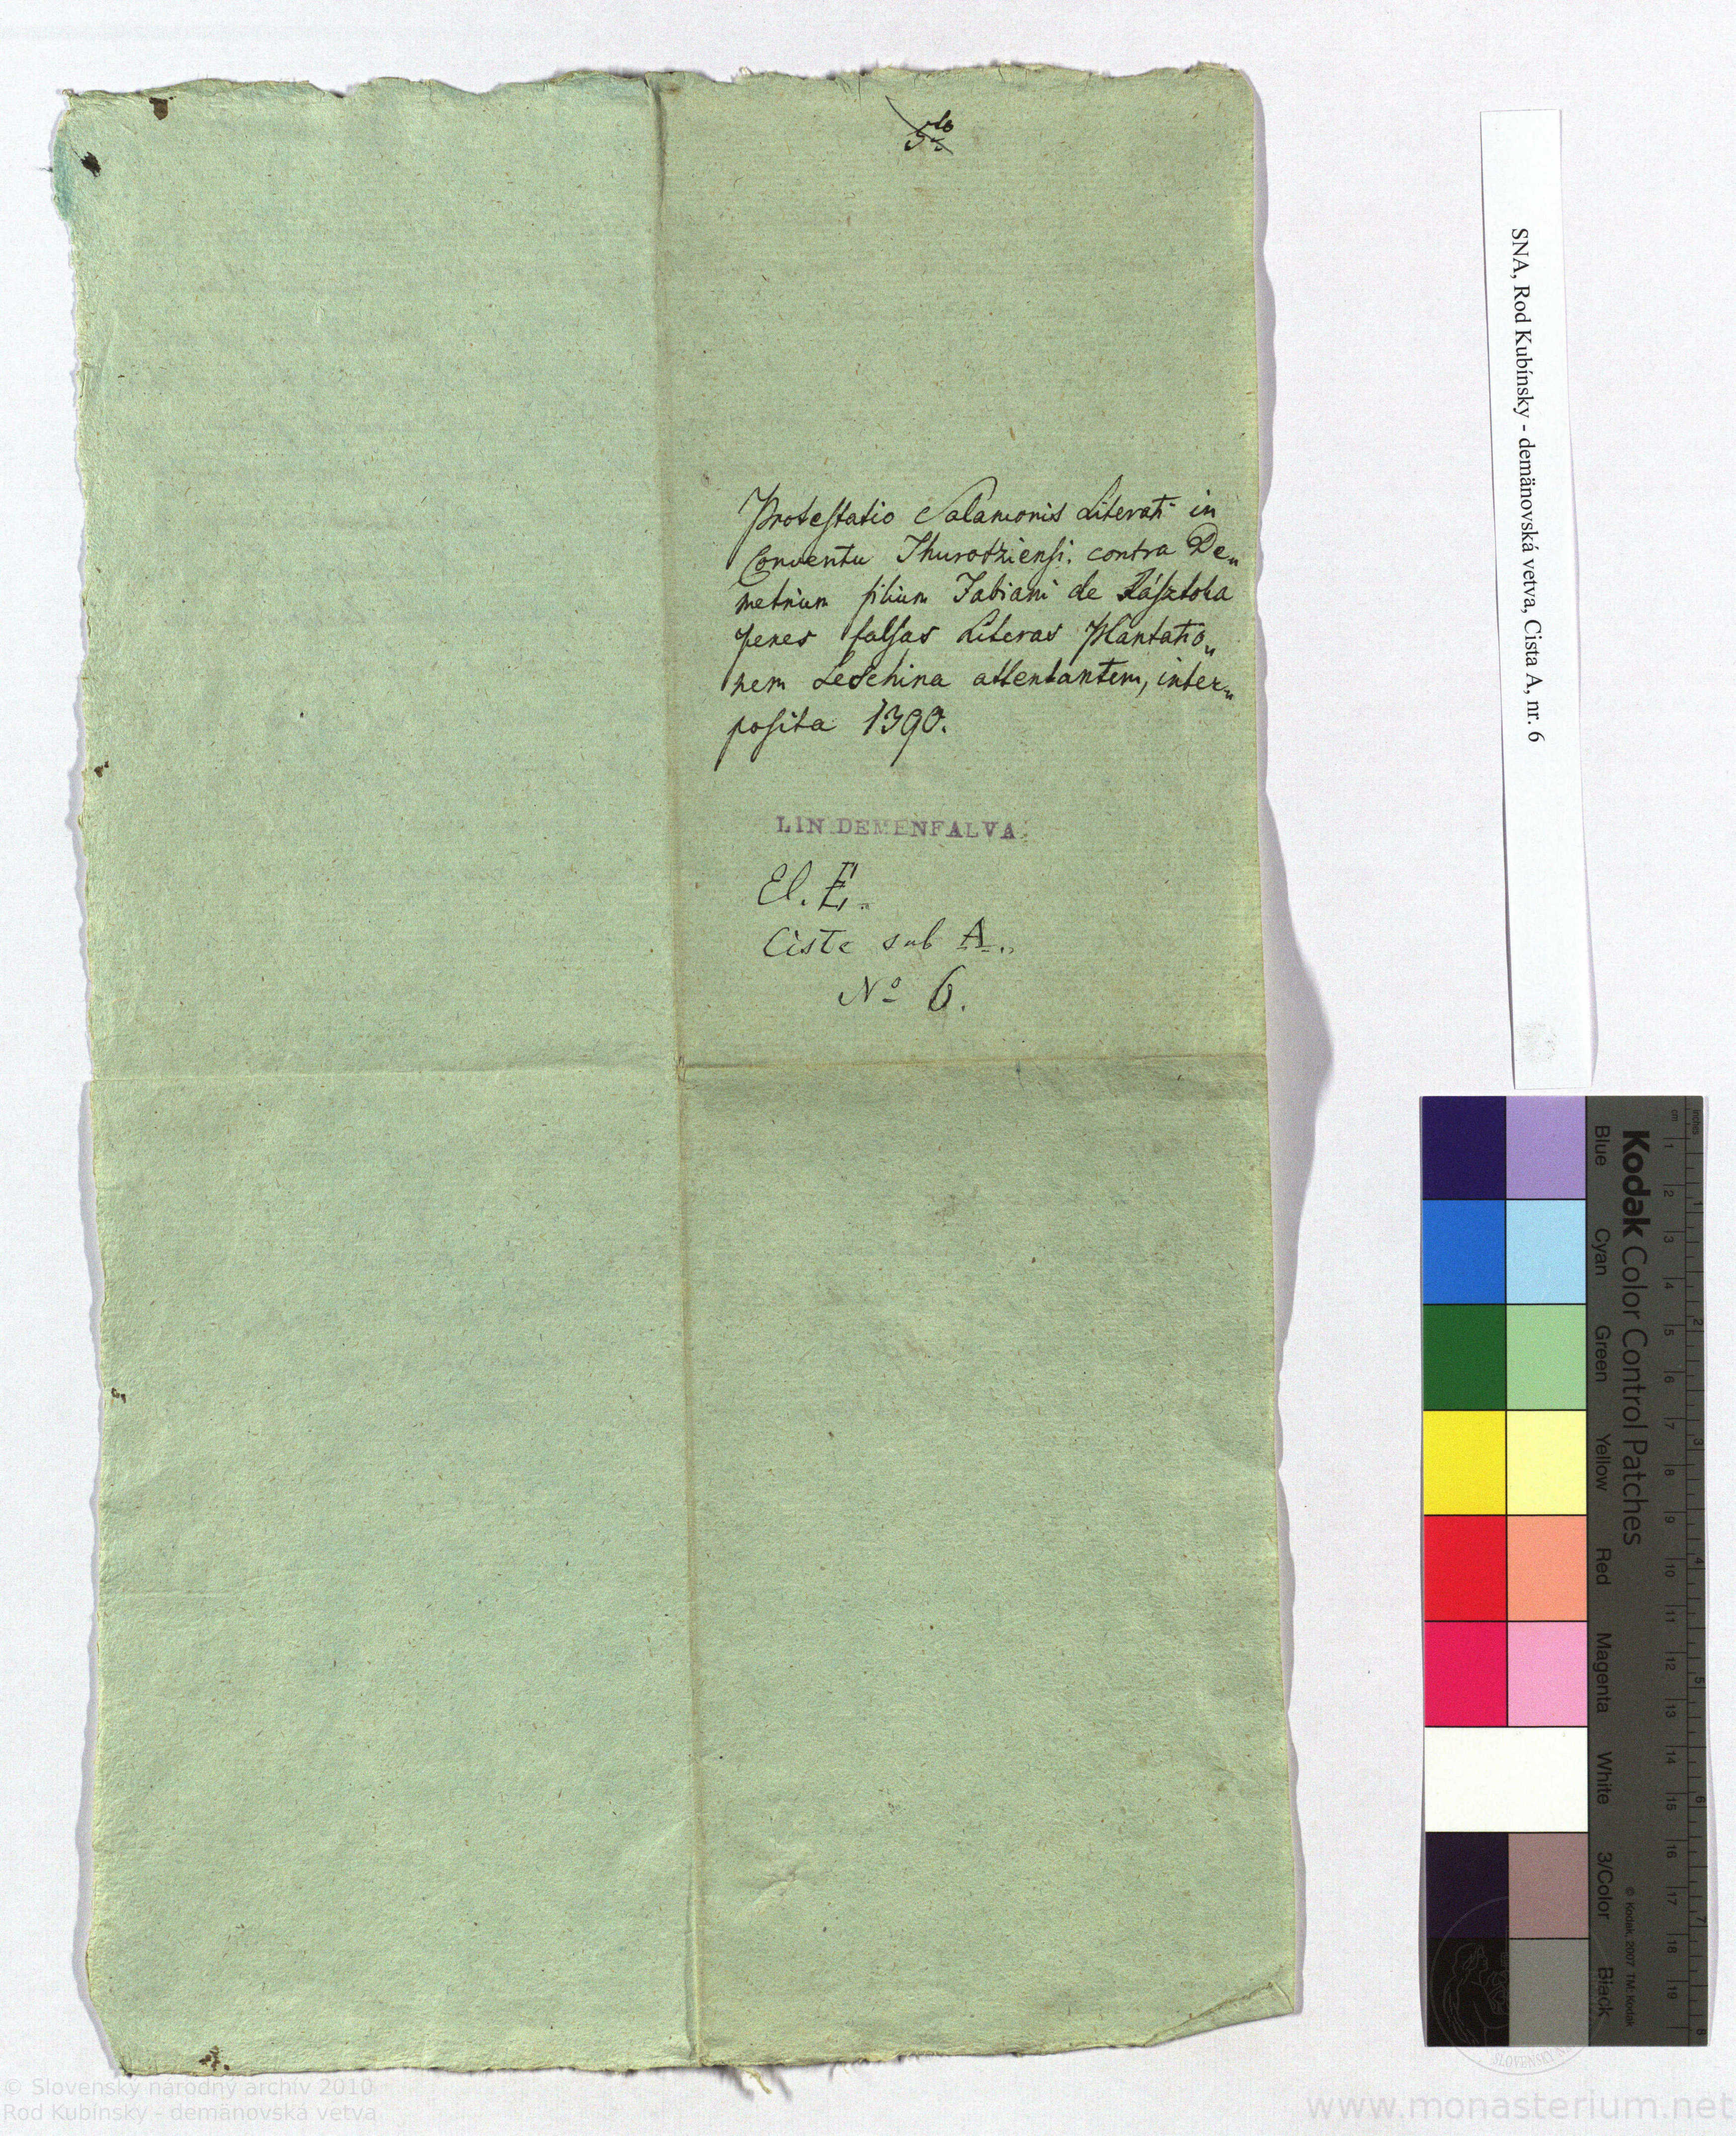 Protestatio Salamonis Literati in
Conventu Thurotziensi. contra De„
metrium filium Fabiani de Rásztoka
penes falsas Literas Plantatio„
nem Ledchina attentantem, inter„
posita 1390.
LIN DEMENFALVA.
El. E.
Ciste sub A.
Nº 6.
SNA, Rod Kubínsky - demänovská vetva, Cista A, nr. 6
Kodak Color Control Patches
Blue Cyan Green Yellow Red Magenta White 3/Color Black
© Kodak, 2007 TM: Kodak
inches 1 2 3 4 5 6 7 8
cm 1 2 3 4 5 6 7 8 9 10 11 12 13 14 15 16 17 18 19
SLOVENSKÝ
© Slovenský národný archív 2010
Rod Kubínsky - demänovská vetva
www.monasterium.net